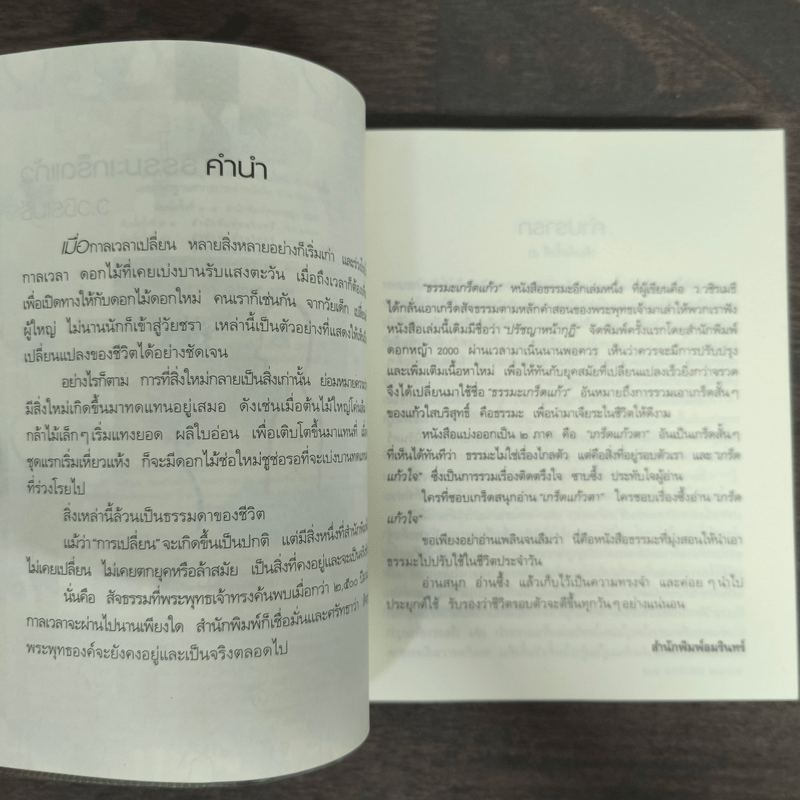 คำนำ
เมื่อกาลเวลาเปลี่ยน หลายสิ่งหลายอย่างก็เริ่มเก่า
กาลเวลา ดอกไม้ที่เคยเบ่งบานรับแสงตะวัน เมื่อถึงเวลาก็ต้อง
เพื่อเปิดทางให้กับดอกไม้ดอกใหม่ คนเราก็เช่นกัน จากวัยเด็ก
ผู้ใหญ่ ไม่นานนักก็เข้าสู่วัยชรา เหล่านี้เป็นตัวอย่างที่แสดงให้
เปลี่ยนแปลงของชีวิตได้อย่างชัดเจน
อย่างไรก็ตาม การที่สิ่งใหม่กลายเป็นสิ่งเก่านั้น
มีสิ่งใหม่เกิดขึ้นมาทดแทนอยู่เสมอ ดังเช่นเมื่อต้นไม้ใหญ่
กล้าไม้เล็กๆ เริ่มแทงยอด ผลิใบอ่อน เพื่อเติบโตขึ้นมาแทนที่
ชุดแรกเริ่มเหี่ยวแห้ง ก็จะมีดอกไม้ช่อใหม่ชูช่อรอที่จะเบ่งบาน
ที่ร่วงโรยไป
สิ่งเหล่านี้ล้วนเป็นธรรมดาของชีวิต
แม้ว่า “การเปลี่ยน” จะเกิดขึ้นเป็นปกติ แต่มีสิ่งหนึ่งที่
ไม่เคยเปลี่ยน ไม่เคยตกยุคหรือล้าสมัย เป็นสิ่งที่คงอยู่และ
นั่นคือ สัจธรรมที่พระพุทธเจ้าทรงค้นพบเมื่อกว่า ๒,๕๐๐
กาลเวลาจะผ่านไปนานเพียงใด สำนักพิมพ์ก็เชื่อมั่นและศรัทธาว่า
พระพุทธองค์จะยังคงอยู่และเป็นจริงตลอดไป
“ธรรมะเกร็ดแก้ว” หนังสือธรรมะอีกเล่มหนึ่ง ที่ผู้เขียนคือ ว.วชิรเมธี
ได้กลั่นเอาเกร็ดสัจธรรมตามหลักคำสอนของพระพุทธเจ้ามาเล่าให้พวกเราฟัง
หนังสือเล่มนี้เดิมมีชื่อว่า “ปรัชญาหน้ากุฏิ” จัดพิมพ์ครั้งแรกโดยสำนักพิมพ์
ดอกหญ้า 2000 ผ่านเวลามาเนิ่นนานพอควร เห็นว่าควรจะมีการปรับปรุง
และเพิ่มเติมเนื้อหาใหม่ เพื่อให้ทันกับยุคสมัยที่เปลี่ยนแปลงเร็วยิ่งกว่าจรวด
จึงได้เปลี่ยนมาใช้ชื่อ “ธรรมะเกร็ดแก้ว” อันหมายถึงการรวมเอาเกร็ดสั้นๆ
ของแก้วใสบริสุทธิ์ คือธรรมะ เพื่อนำมาเจียระไนชีวิตให้ดีงาม
หนังสือแบ่งออกเป็น ๒ ภาค คือ “เกร็ดแก้วตา” อันเป็นเกร็ดสั้นๆ
ที่เห็นได้ทันทีว่า ธรรมะไม่ใช่เรื่องไกลตัว แต่คือสิ่งที่อยู่รอบตัวเรา และ “เกร็ด
แก้วใจ” ซึ่งเป็นการรวมเรื่องติดตรึงใจ ซาบซึ้ง ประทับใจผู้อ่าน
ใครที่ชอบเกร็ดสนุกอ่าน “เกร็ดแก้วตา” ใครชอบเรื่องซึ้งอ่าน “เกร็ด
แก้วใจ”
ขอเพียงอย่าอ่านเพลินจนลืมว่า นี่คือหนังสือธรรมะที่มุ่งสอนให้นำเอา
ธรรมะไปปรับใช้ในชีวิตประจำวัน
อ่านสนุก อ่านซึ้ง แล้วเก็บไว้เป็นความทรงจำ และค่อยๆ นำไป
ประยุกต์ใช้ รับรองว่าชีวิตรอบตัวจะดีขึ้นทุกวันๆ อย่างแน่นอน
สำนักพิมพ์อมรินทร์